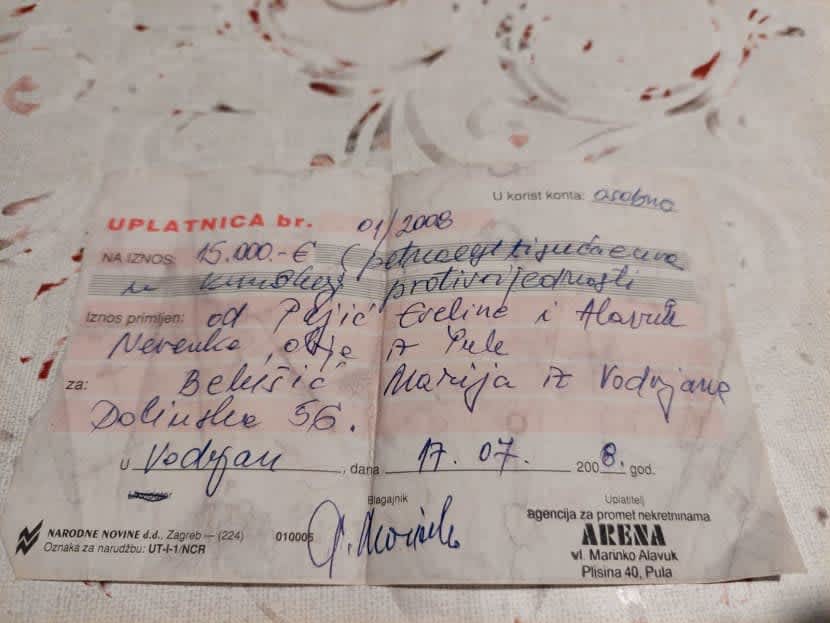 U korist konta: osobno
UPLATNICA br. 01/2008
NA IZNOS: 15.000.-€ (petnaest tisuća eura
u kunskoj protivrijednosti
Iznos primljen: od Pejić Eveline i Alavuk
Nevenka, obje iz Pule
za: Belušić Marija iz Vodnjana
Dolinska 56.
U Vodnjan, dana 17. 07. 2008. god.
Blagajnik
Uplatitelj
NARODNE NOVINE d.d., Zagreb — (224) 010005
Oznaka za narudžbu: UT-I-1/NCR
agencija za promet nekretninama
ARENA
vl. Marinko Alavuk
Plisina 40, Pula